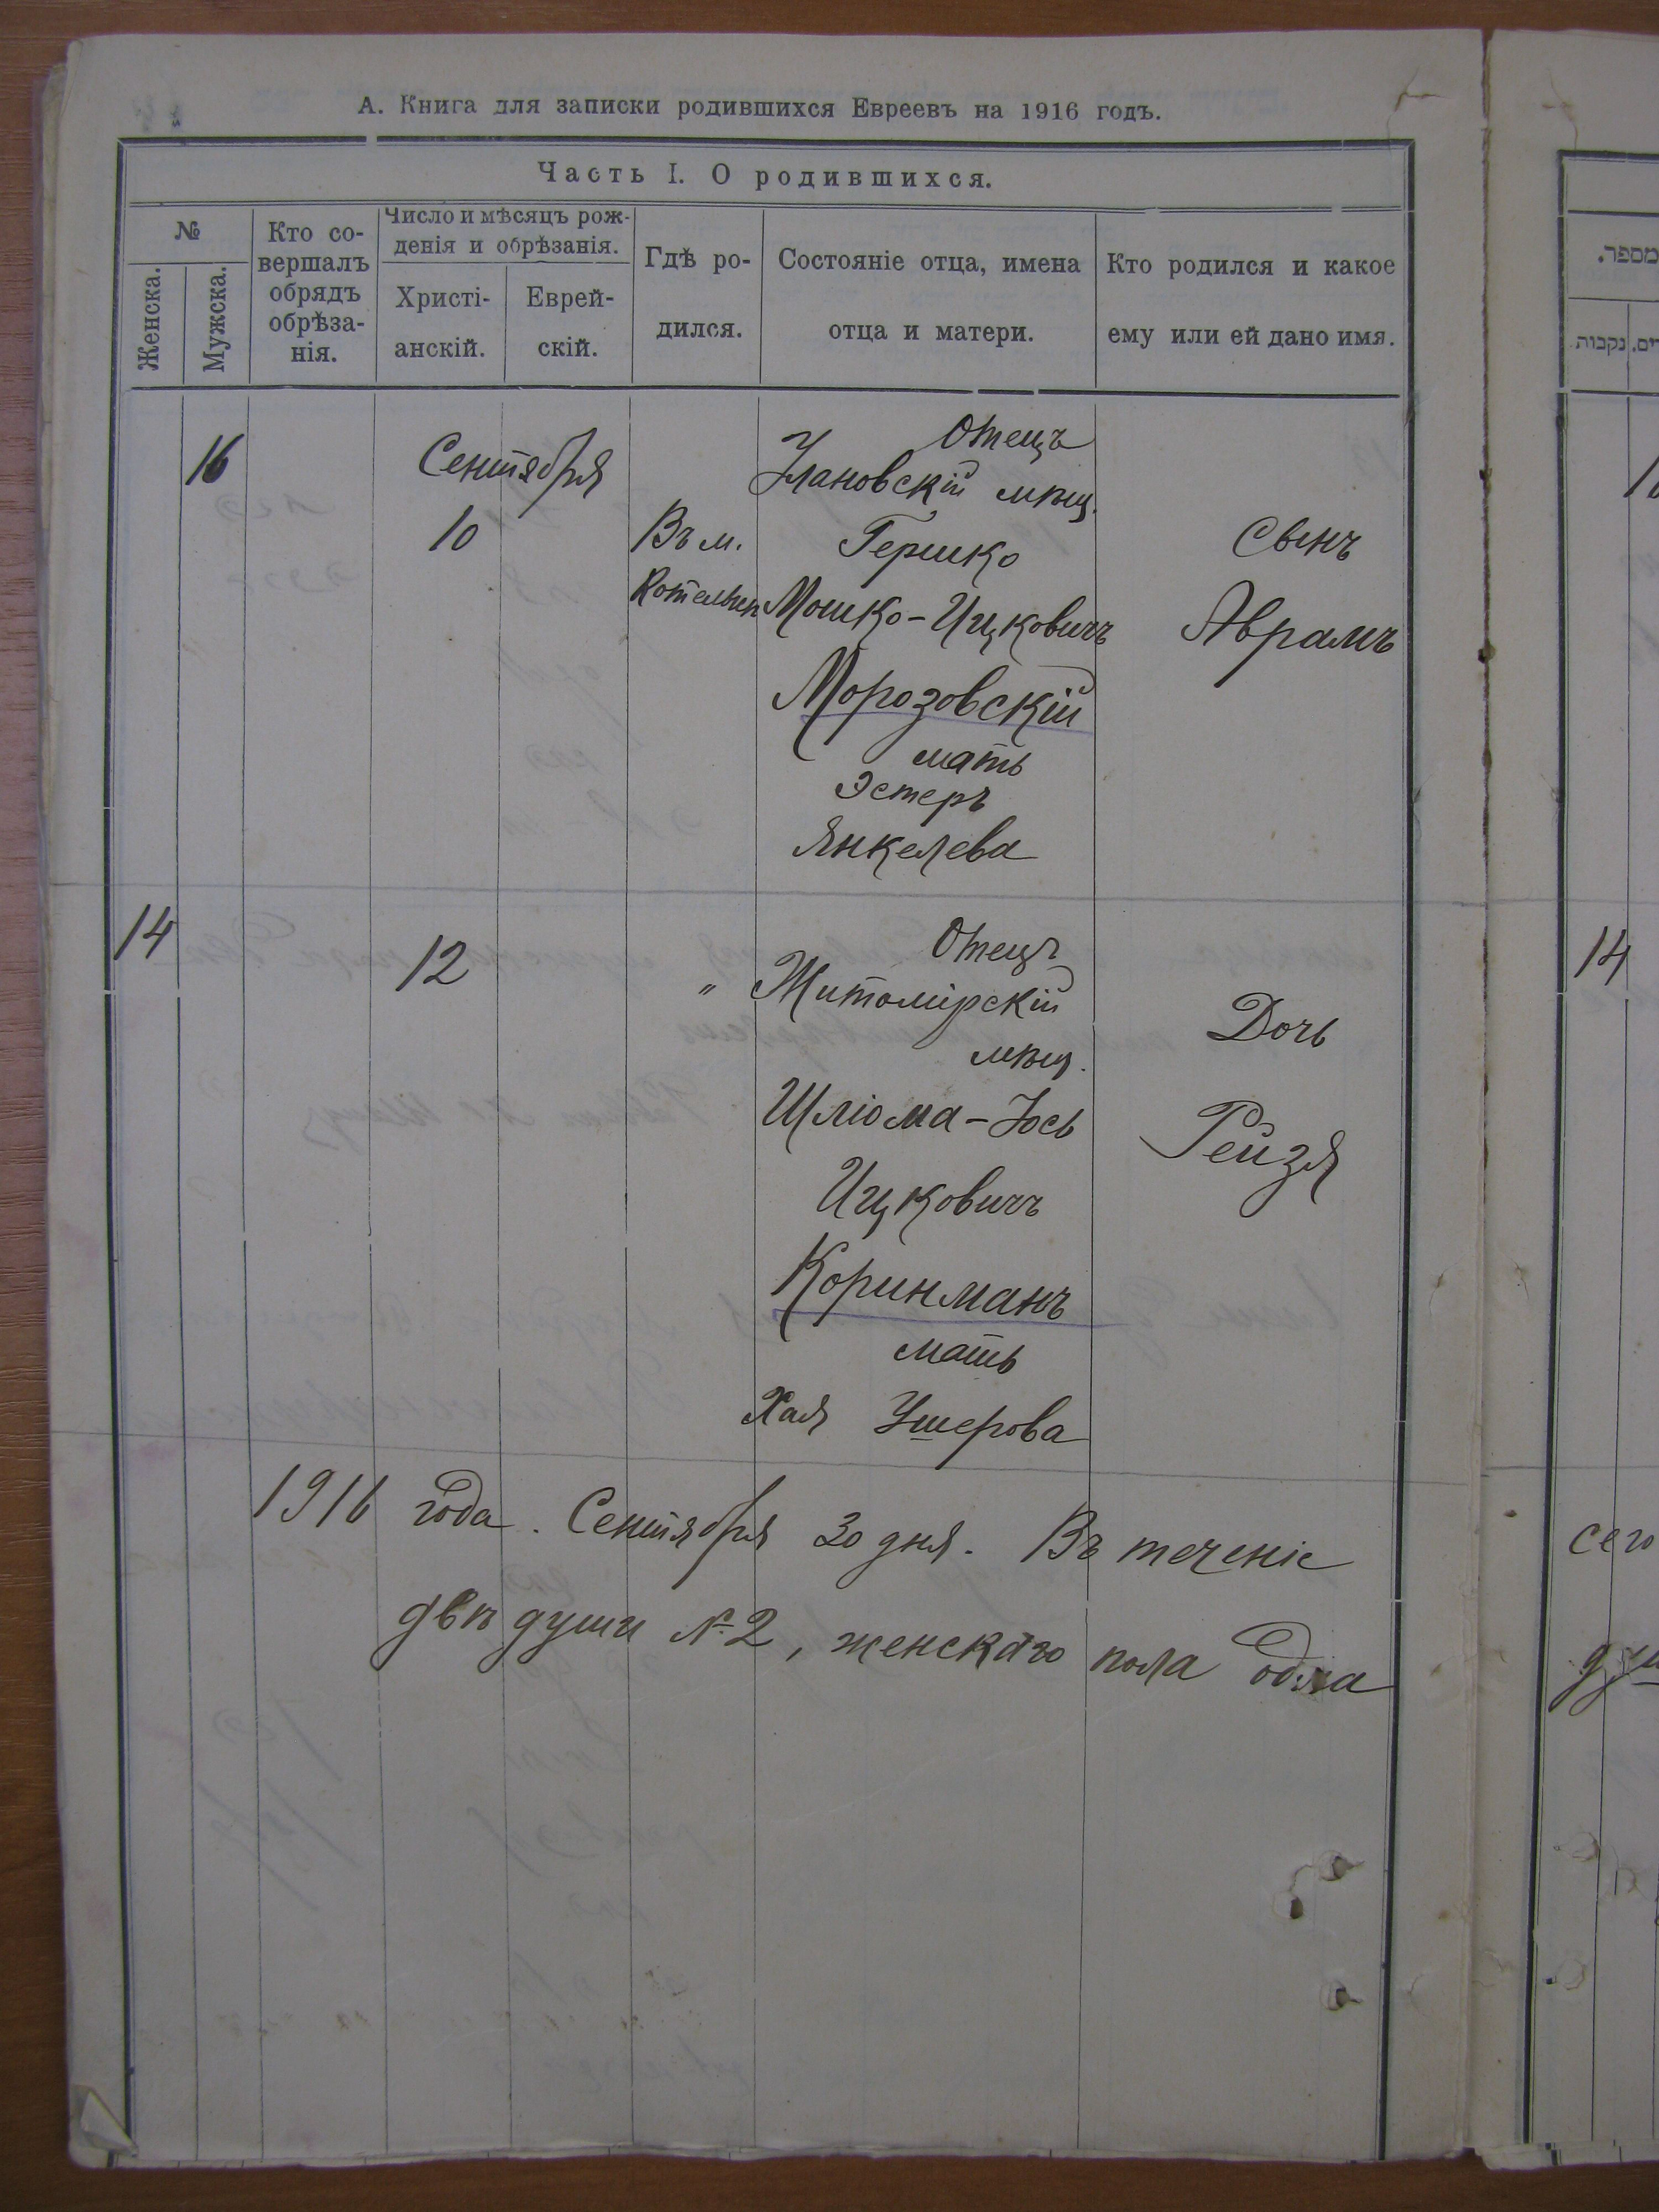 А. Книга для записки родившихся Евреевъ на 1916 годъ.
Часть I. О родившихся.
№
Женска.
Мужска.
Кто со-
вершалъ
обрядъ
обрѣза-
нія.
Число и мѣсяцъ рож-
денія и обрѣзанія.
Христі-
анскій.
Еврей-
скій.
Гдѣ ро-
дился.
Состояніе отца, имена
отца и матери.
Кто родился и какое
ему или ей дано имя.
16
Сентября
10
Въ м.
Котельнѣ
Отецъ
Улановскій мѣщ.
Гершко
Мошко-Ицковичъ
Морозовскій
мать
Эстеръ
Янкелева
Сынъ
Аврамъ
14
12
"
Отецъ
Житомірскій
мѣщ.
Шліома-Іось
Ицковичъ
Коринманъ
мать
Хая Ушерова
Дочь
Рейзя
1916 года. Сентября 30 дня. Въ теченіе
двѣ души № 2, женскаго пола одна
מספר.
נקבות
14
сего